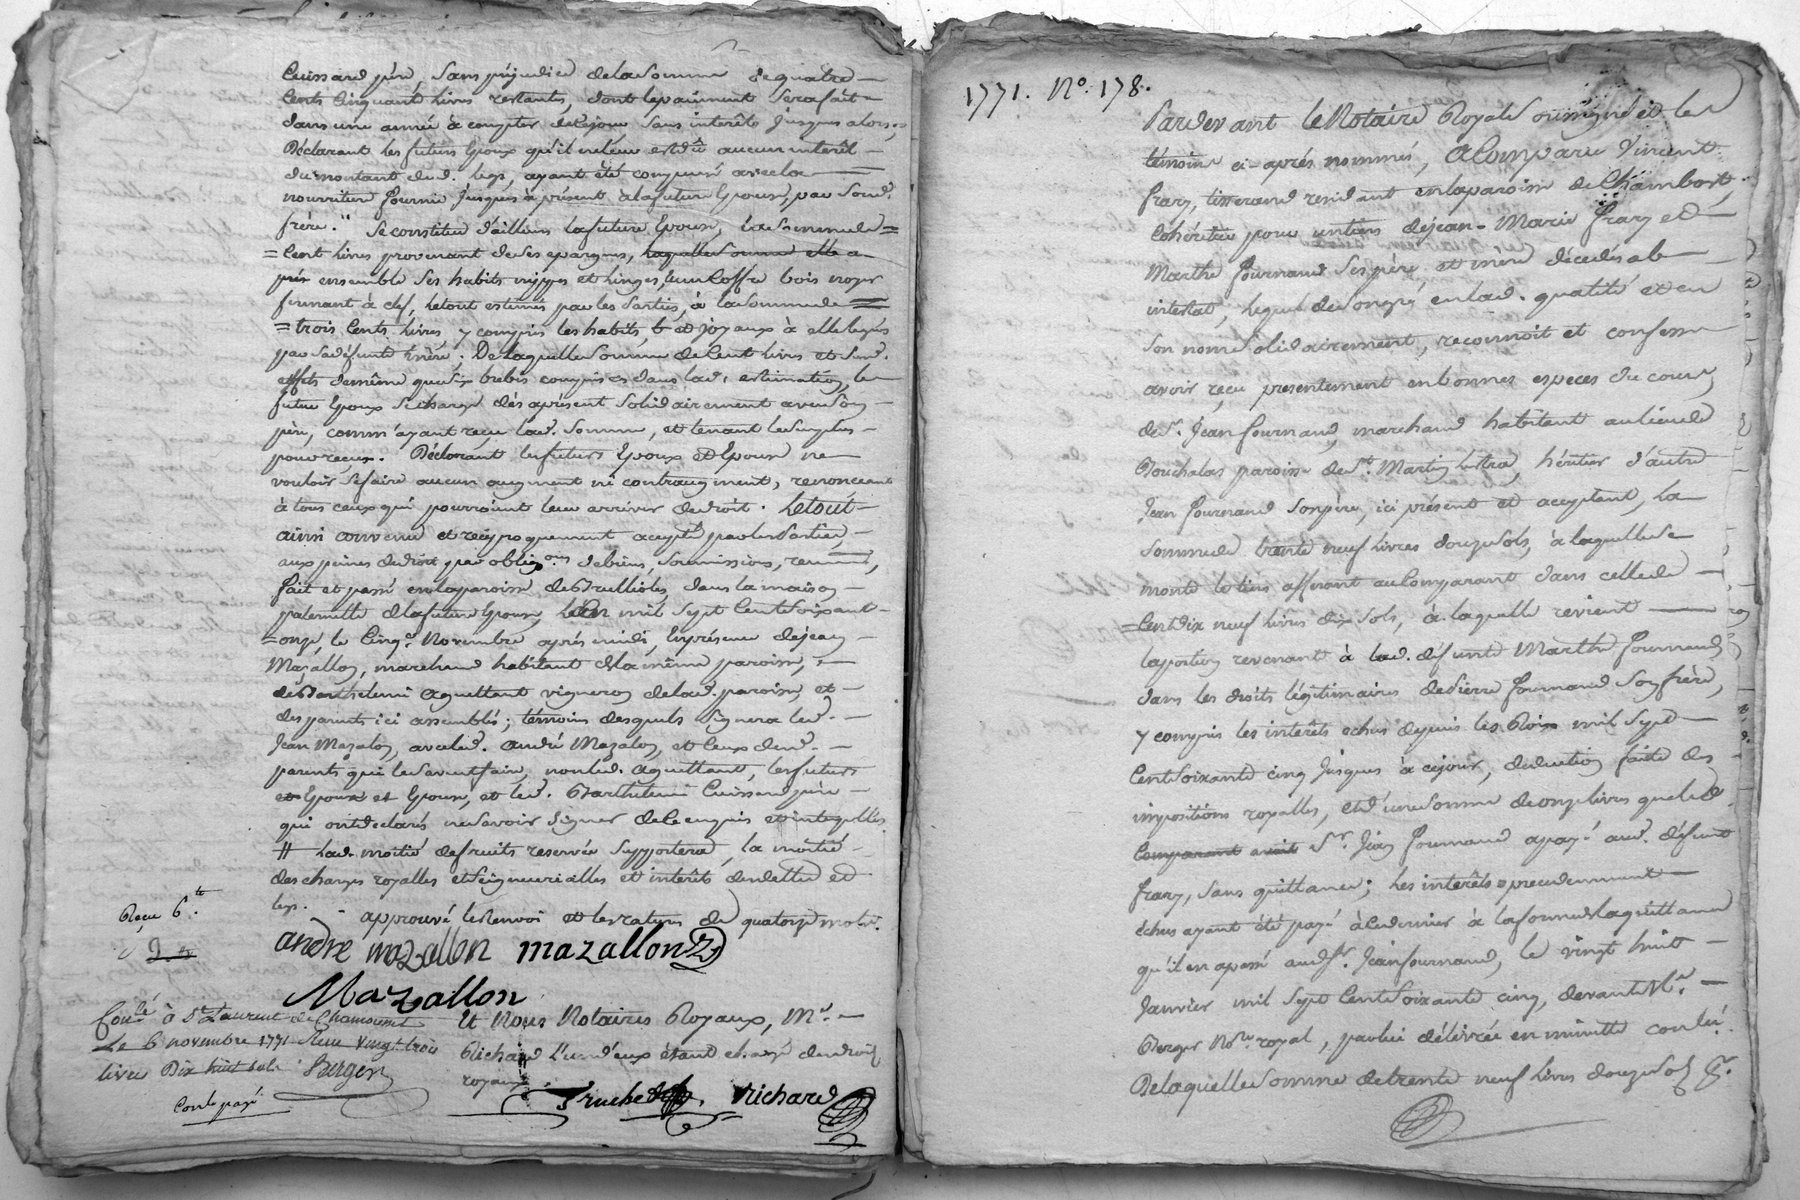 Cuissard père, sans préjudice de la somme de quatre
Cents Cinquante livres restants, dont le paiment sera fait
dans une année à compter de ce jour sans interêts jusques alors,
Déclarant les futurs Epoux qu'il ne leur est dû aucun interêt
du montant dud. legs, ayant été compensé avec la
nourriture fournie jusques à présent à la future Epouse, par sond.
frère." Se constitue d'ailleurs la future Epouse, la somme de =
= Cent livres provenant de ses epargnes,
ensemble ses habits nippes et linges, & un Coffre bois noyer
fermant à clef, le tout estimé par les parties, à la somme de =
= trois Cents livres y compris les habits, & joyaux à elle legués
par sa défunte mère; De laquelle somme de Cent livres et susd.
effets de même que six brebis comprises dans lad. estimation, le
futur Epoux se charge dès à présent solidairement avec son
père, comm'ayant reçu lad. somme, et tenant le surplus
pour reçus. Déclarant les futurs Epoux et Epouse ne
vouloir se faire aucun augment ni contraugment, renonceant
à tous ceux qui pourroient leur arriver de droit. Le tout
ainsi convenu et réciproquement accepté par les Parties,
aux peines de droit par obligons. de biens, soumissions, renon.
fait et passé en la paroisse de Brullioles, dans la maison
paternelle de la future Epouse, L'an mil sept Cent soixant
= onze, le Cinq. Novembre après midi, En présence de Jean
Mazallon, marchand habitant de la même paroisse,
de Barthelemi Aguettant vigneron de lad. paroisse, et
des parents ici assemblés; témoins desquels signera led.
Jean Mazalon, avec led. André Mazalon, et Ceux desd.
parents qui le savent faire, non led. Aguettant, les futurs
Epoux et Epouse, et led. Barthelemi Cuissard père
qui ont déclarés ne savoir signer de ce enquis et interpellés
# lad. moitié de fruits reservée supportera la moitié
des charges royalles et seigneurialles et interêts dendettes et
legs. approuvé le renvoi et les ratures de quatorze mots.
Reçu 6.tt
andre mazallon mazallon
Mazallon
Conlé à St Laurent de Chamousset
Le 6 novembre 1771 Reçu vingt trois
livres Dix huit sols Berger
Conle payé
Et Nous Notaires Royaux, Me.
Richard l'un d'eux étant chargé des droits
royaux.
Richard
1771. No. 178.
Pardevant le Notaire Royal soussigné et les
témoins ci-après nommés, a Comparu Vincent
frary, tisserand residant en la paroisse de Chambost,
Cohéritier pour un tiers de Jean-Marie frary et
Marthe fournand ses père et mère décedés ab
intestat, lequel de son gré en lad. qualité et en
son nom solidairement, reconnoit et confesse
avoir reçu presentement en bonnes especes du cours
de Sr. Jean fournand, marchand habitant au lieu de
Bouchalas paroisse de St. Martin Lestra, héritier d'autre
Jean fournand son père, ici présent et acceptant, la
somme de trente neuf livres douze sols, à laquelle se
monte le tiers afferant au Comparant dans celle de
= Cent dix neuf livres dix sols, à laquelle revient
la portion revenant à lad. défunte Marthe fournand
dans les droits légitimaires de Pierre fournand son frère,
y compris les interêts echus depuis les Rois mil sept
Cent soixante cinq jusques à ce jour, deduction faite des
impositions royalles, et d'une somme de onze livres que led.
Comparant avoit Sr. Jean fournand a payé aud. défunt
frary, sans quittance; Les interêts precedemment
echus ayant été payé à ce dernier à la forme de la quittance
qu'il en a passé aud. Sr. Jean fournand, le vingt huit
Janvier mil sept Cent soixante cinq, devant Me.
Berger Nore. royal, par lui délivrée en minutte contlé.
De laquelle somme de trente neuf livres douze sols &.